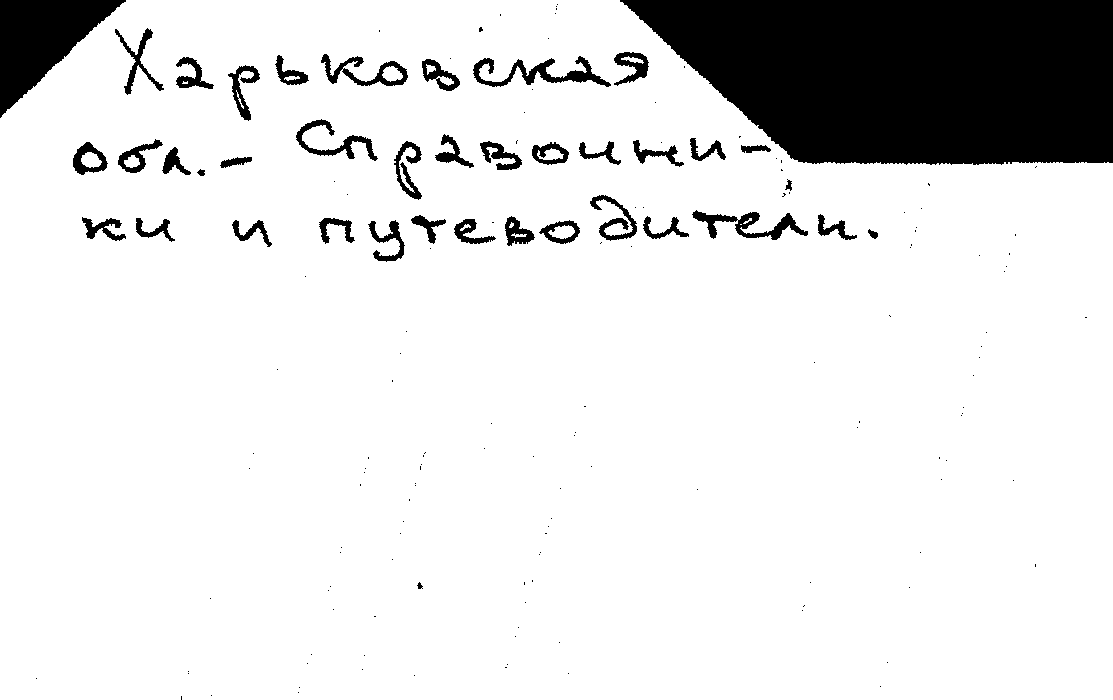 Харьковская
обл. - Справочни-
ки и путеводители.